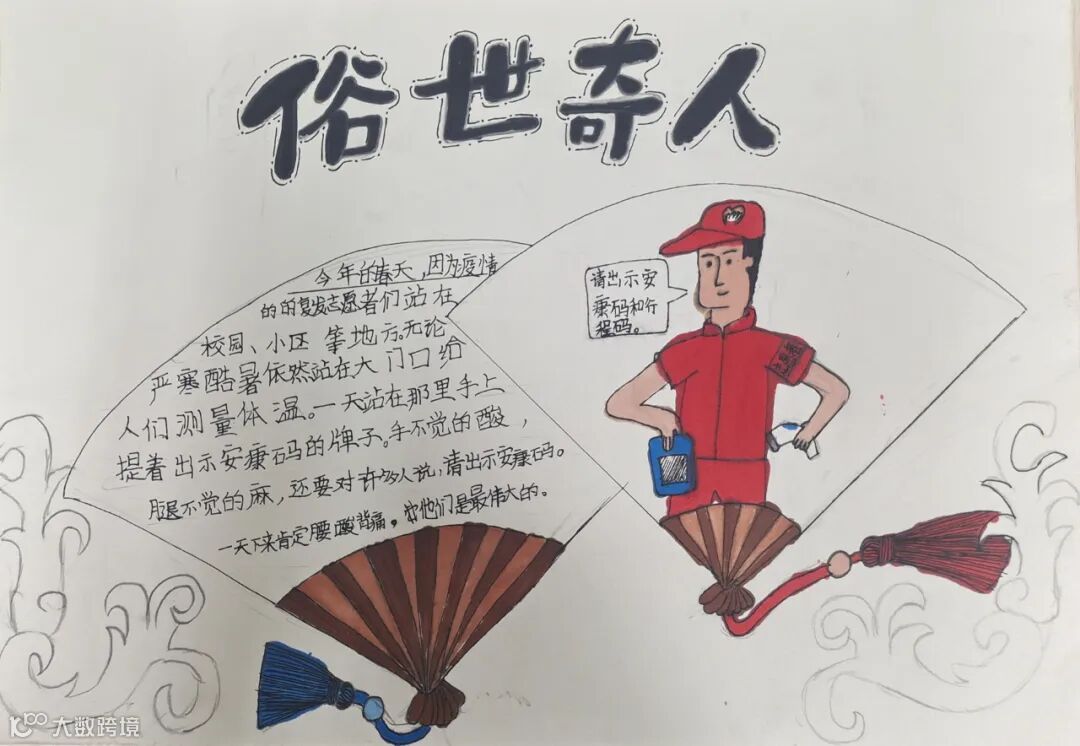 俗世奇人
今年的春天,因为疫情
的的复发志愿者们站在
校园、小区等地方。无论
严寒酷暑依然站在大门口给
人们测量体温。一天站在那里手上
提着出示安康码的牌子。手不觉的酸,
腿不觉的麻,还要对许多人说,请出示安康码。
一天下来肯定腰酸背痛。他们是最伟大的。
请出示安
康码和行
程码。
大数跨境